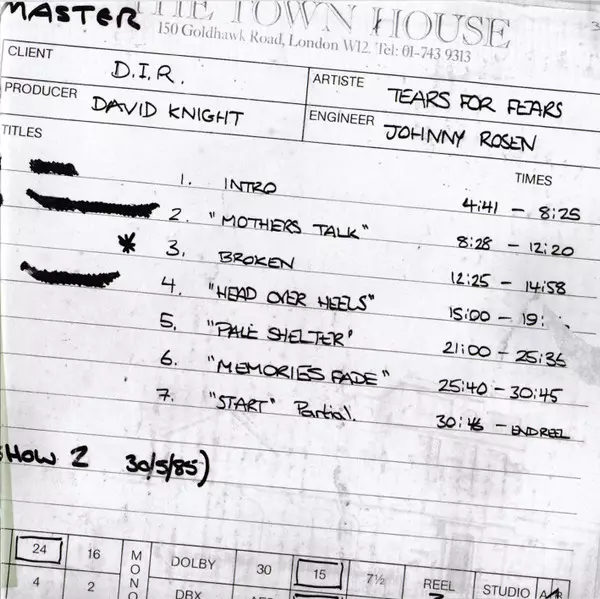 MASTER
THE TOWN HOUSE
150 Goldhawk Road, London W12. Tel: 01-743 9313
CLIENT D.I.R. ARTISTE TEARS FOR FEARS
PRODUCER DAVID KNIGHT ENGINEER JOHNNY ROSEN
TITLES TIMES
1. INTRO 4:41 - 8:25
2. "MOTHERS TALK" 8:28 - 12:20
* 3. BROKEN 12:25 - 14:58
4. "HEAD OVER HEELS" 15:00 - 19:
5. "PALE SHELTER" 21:00 - 25:36
6. "MEMORIES FADE" 25:40 - 30:45
7. "START" Partial. 30:46 - END REEL
SHOW 2 30/5/85)
24 16 MONO DOLBY 30 15 7½ REEL STUDIO
4 2 DBX